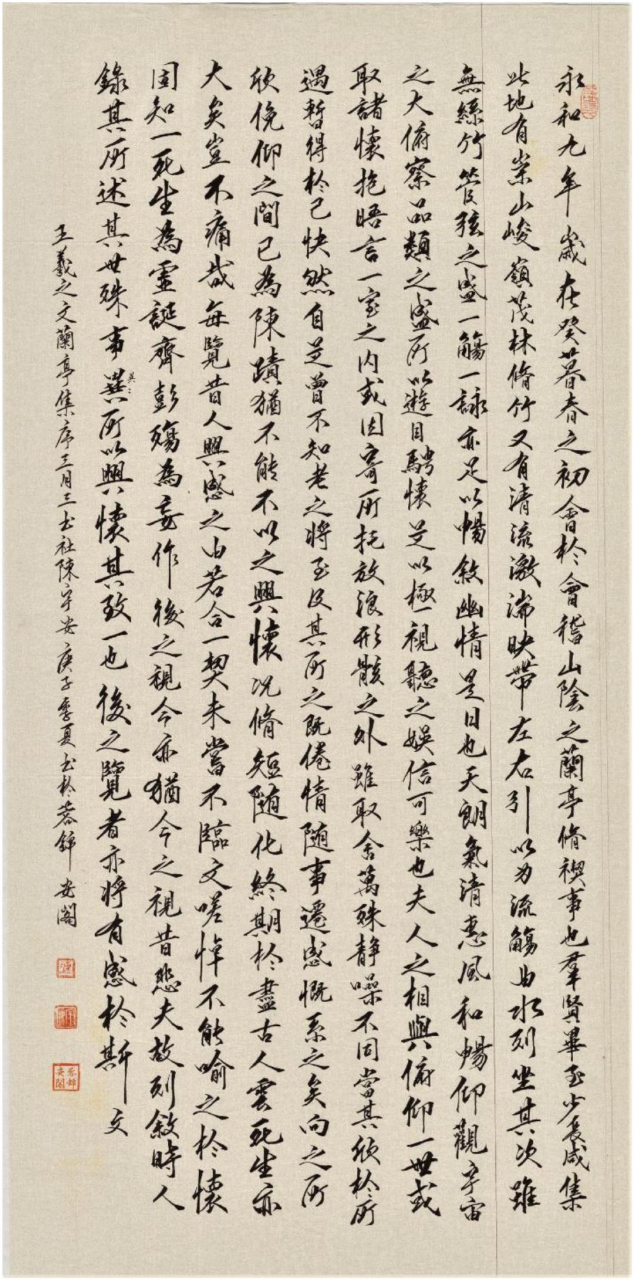 永和九年歲在癸暮春之初會於會稽山陰之蘭亭脩禊事也羣賢畢至少長咸集
此地有崇山峻嶺茂林脩竹又有清流激湍映帶左右引以為流觴曲水列坐其次雖
無絲竹管弦之盛一觴一詠亦足以暢敘幽情是日也天朗氣清惠風和暢仰觀宇宙
之大俯察品類之盛所以遊目騁懷足以極視聽之娛信可樂也夫人之相與俯仰一世或
取諸懷抱晤言一室之內或因寄所托放浪形骸之外雖取舍萬殊靜噪不同當其欣於所
遇暫得於己快然自足曾不知老之將至及其所之既倦情隨事遷感慨系之矣向之所
欣俛仰之間已為陳蹟猶不能不以之興懷況脩短隨化終期於盡古人雲死生亦
大矣豈不痛哉每覽昔人興感之由若合一契未嘗不臨文嗟悼不能喻之於懷
固知一死生為虛誕齊彭殤為妄作後之視今亦猶今之視昔悲夫故列敘時人
錄其所述其世殊事異所以興懷其致一也後之覽者亦將有感於斯文
王羲之文蘭亭集序三月三書社陳宇安庚子季夏書於蓉錦安閣
蓉錦安閣